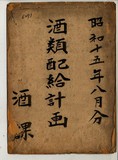 昭和十五年八月分
酒類配給計画
酒課